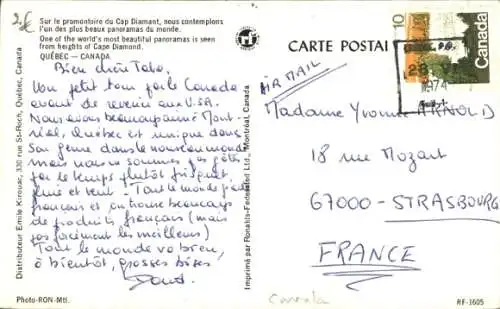 2.€
Sur le promontoire du Cap Diamant, nous contemplons
l'un des plus beaux panoramas du monde.
One of the world's most beautiful panoramas is seen
from heights of Cape Diamond.
QUÉBEC — CANADA
Bien chère Tata.
Un petit tour par le Canada
avant de revenir aux U.S.A.
Nous avons beaucoup aimé Mont-
réal, Québec est unique dans
son genre dans le nouveau monde
mais nous ne sommes pas gâtés
par le temps plutôt frisquet,
pluie et vent - Tout le monde parle
français et on trouve beaucoup
de produits français (mais
pas forcément les meilleurs)
Tout le monde va bien,
à bientôt, grosses bises
Distributeur Emile Kirouac, 330 rue St-Roch, Québec, Canada
Photo-RON-Mtl.
Imprimé par Ronalds-Federated Ltd., Montréal, Canada
CARTE POSTALE
10
Canada
1974
AIR MAIL
Madame Yvonne ARNOLD
18 rue Mozart
67000 - STRASBOURG
FRANCE
Canada
RF-1605